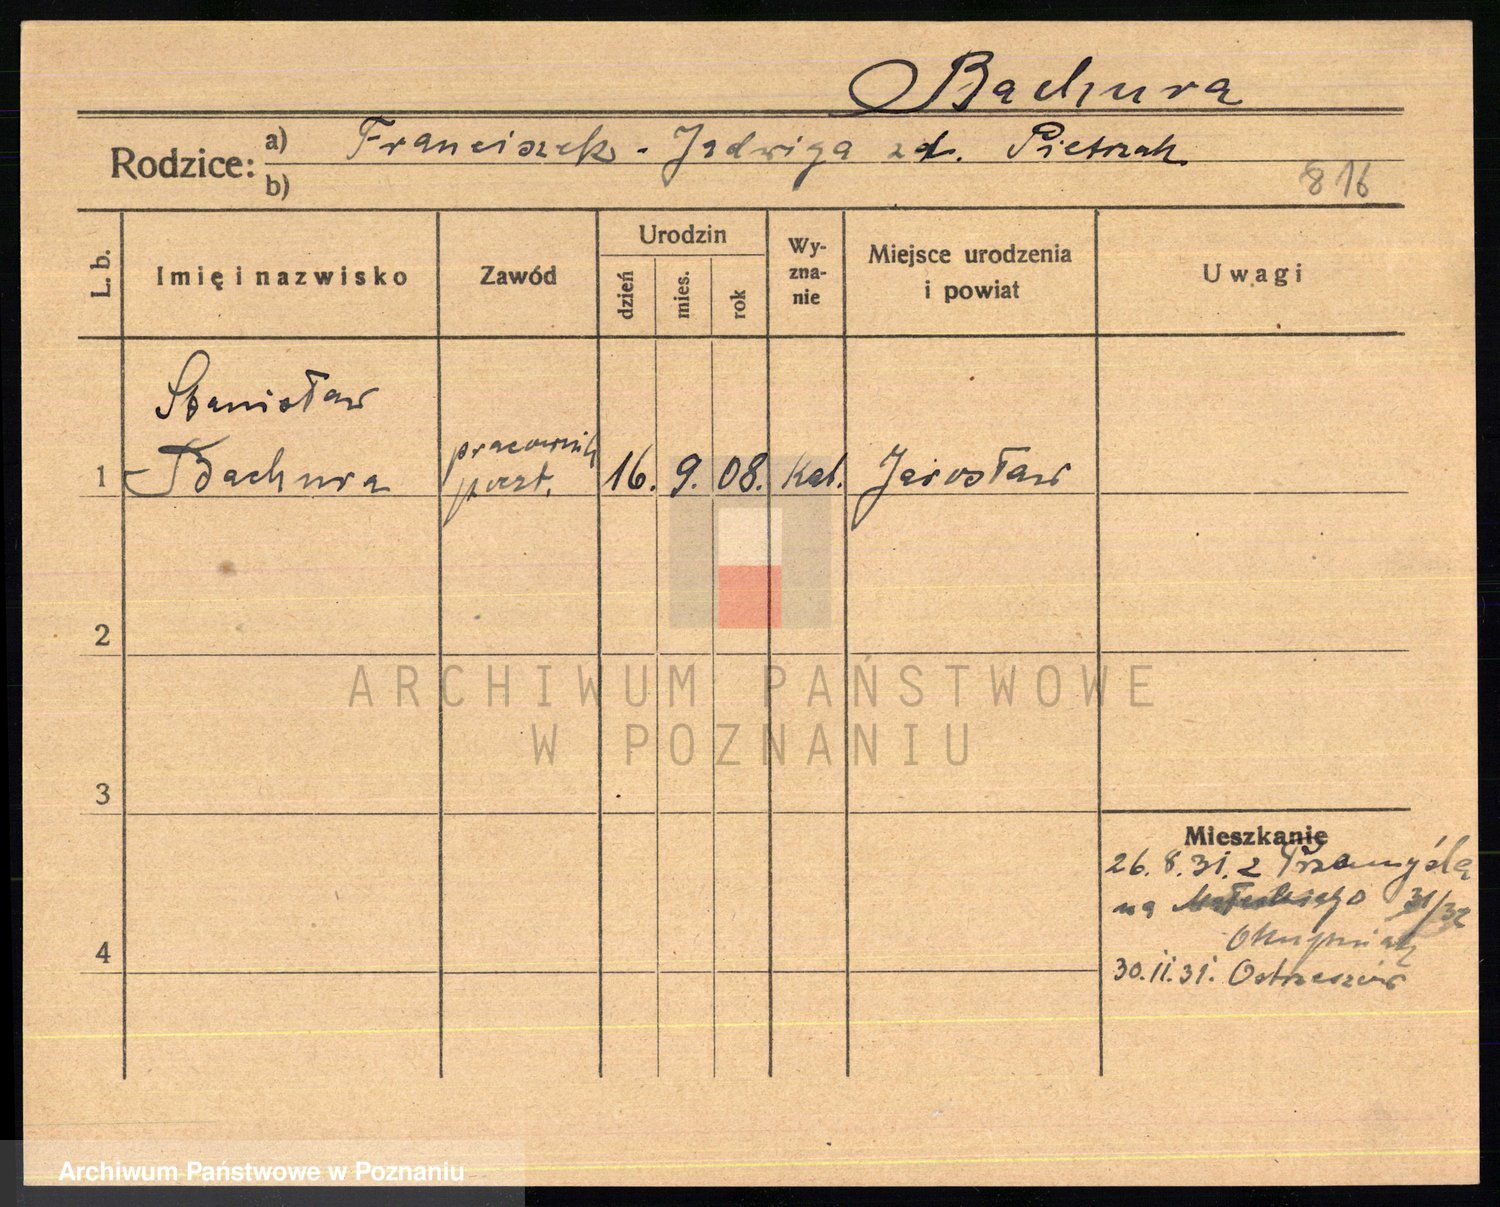 Bachura
Rodzice: a) Franciszek - Jadwiga zd. Pietrzak
b)
816
L. b.
Imię i nazwisko
Zawód
Urodzin
dzień
mies.
rok
Wy-
zna-
nie
Miejsce urodzenia
i powiat
Uwagi
Stanisław
1 Bachura
pracownik
poczt.
16. 9. 08. kat. Jarosław
2
3
4
Mieszkanie
26.8.31. z Przemyśla
na 31/32
30.11.31. Ostrzeszów
ARCHIWUM PAŃSTWOWE
W POZNANIU
Archiwum Państwowe w Poznaniu